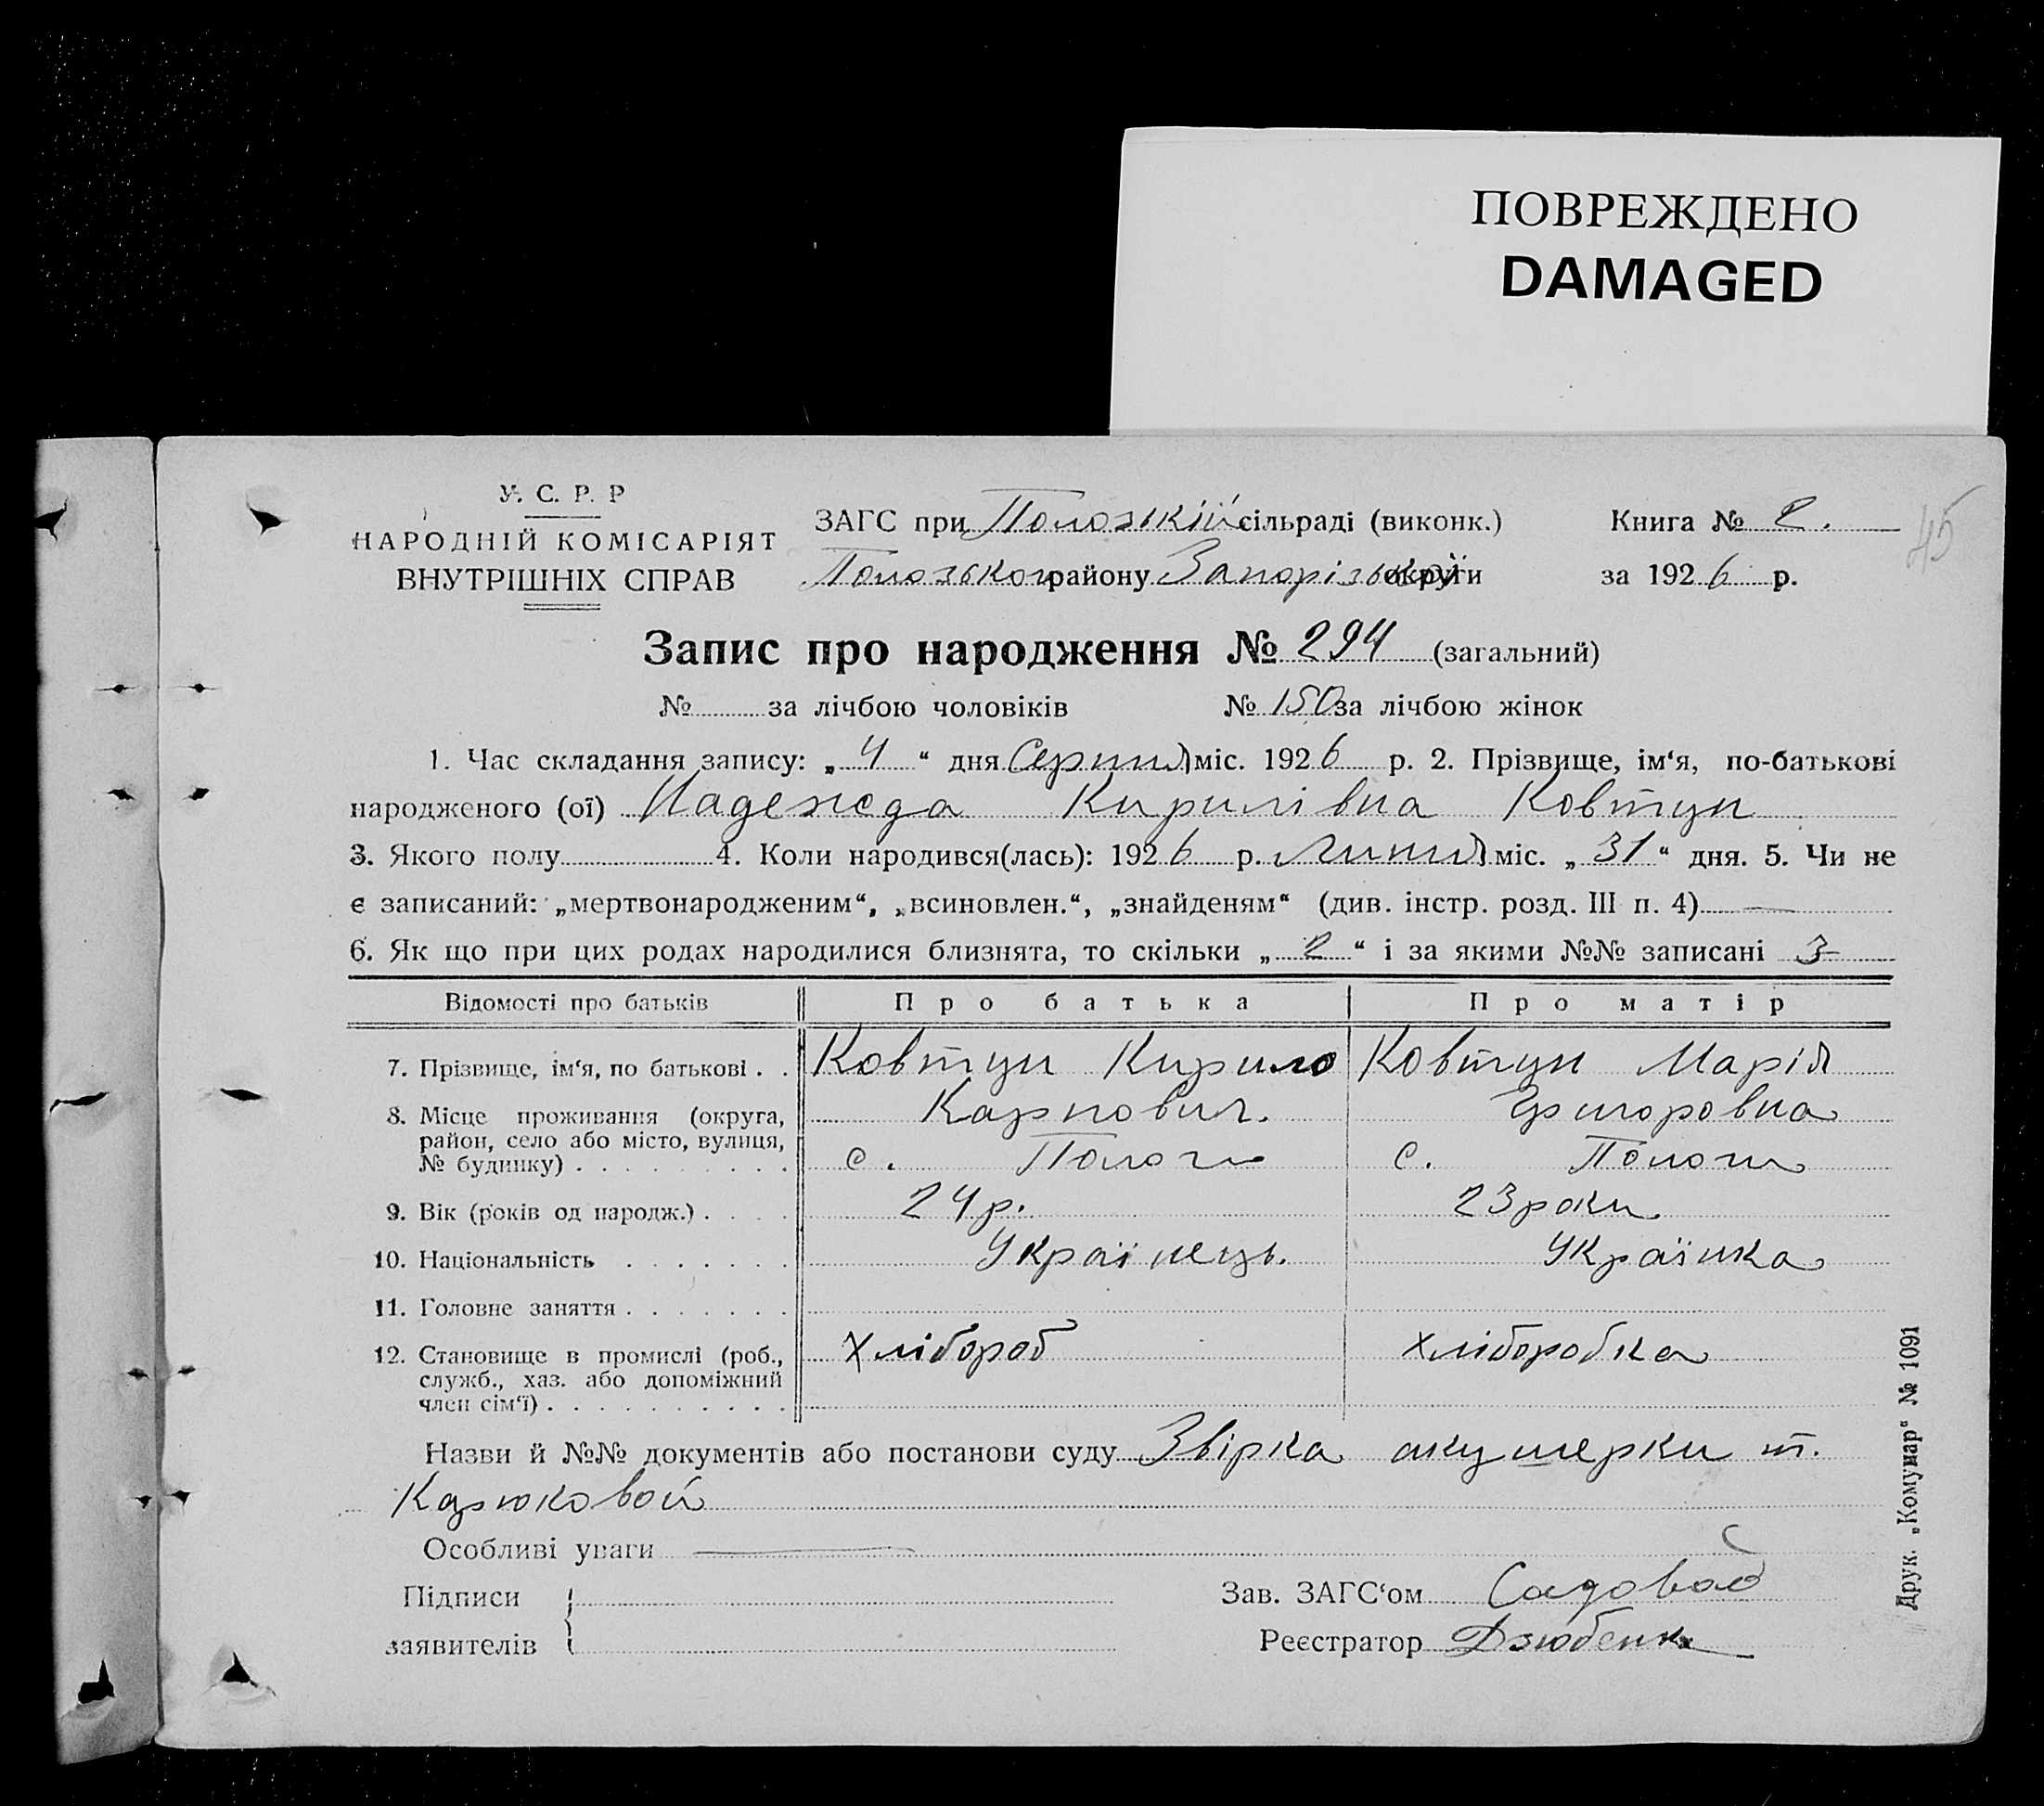 ПОВРЕЖДЕНО
DAMAGED
У. С. Р. Р
НАРОДНІЙ КОМІСАРІЯТ
ВНУТРІШНІХ СПРАВ
ЗАГС при Полозькій сільраді (виконк.)
Полозького району Запорізької округи
Книга № 2.
за 1926 р.
45
Запис про народження № 294 (загальний)
№ за лічбою чоловіків № 150 за лічбою жінок
1. Час складання запису: „4“ дня Серпня міс. 1926 р. 2. Прізвище, ім‘я, по-батькові
народженого (ої) Надежда Кирилівна Ковтун
3. Якого полу 4. Коли народився(лась): 1926 р. Липня міс. „31“ дня. 5. Чи не
є записаний: „мертвонародженим“, „всиновлен.“, „знайденям“ (див. інстр. розд. III п. 4) —
6. Як що при цих родах народилися близнята, то скільки „2“ і за якими №№ записані 3
Відомості про батьків Про батька Про матір
7. Прізвище, ім‘я, по батькові . . Ковтун Кирило Ковтун Марія
Карпович. Григоровна
8. Місце проживання (округа,
район, село або місто, вулиця,
№ будинку) . . . . . . . . . с. Пологи с. Пологи
9. Вік (років од народж.) . . . . 24 р. 23 роки
10. Національність . . . . . . . Українець. Українка
11. Головне заняття . . . . . . .
12. Становище в промислі (роб.,
служб., хаз. або допоміжний
член сім‘ї) . . . . . . . . . . Хлібороб хліборобка
Назви й №№ документів або постанови суду Звірка акушерки т.
Особливі уваги —
Підписи
заявителів
Зав. ЗАГС‘ом Садовой
Реєстратор Дзюбенко
Друк. „Комунар“ № 1091